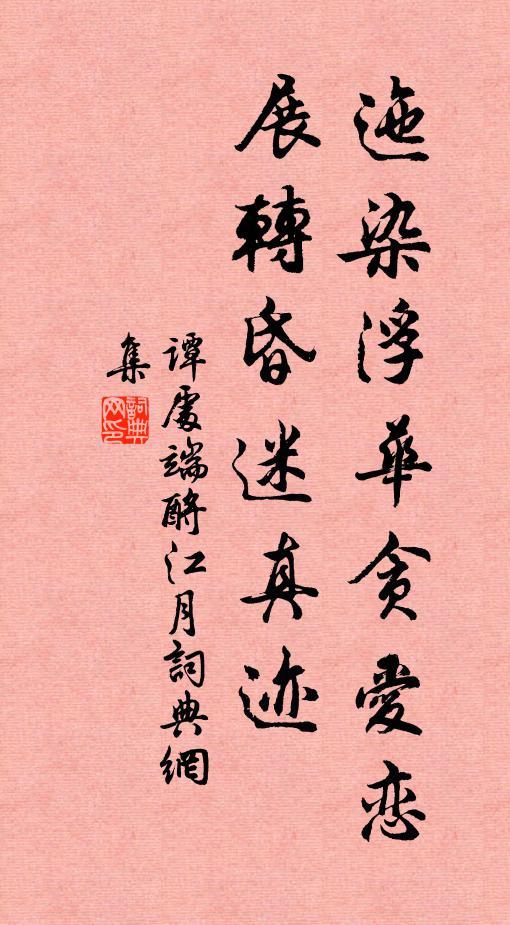 迤染浮華貪愛恋
展轉昏迷真迹
譚處端酹江月詞典網
集
詞典
网印